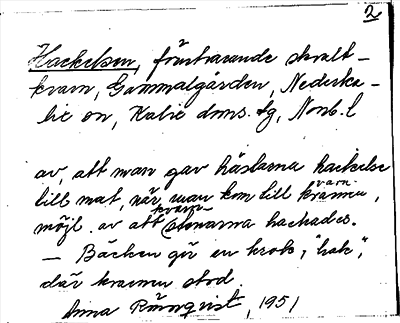 2
Hackelsen, förutvarande skvalt-
kvarn, Gammalgården, Nederka-
lix on, Kalix dms. tg, Nonb. l
av, att man gav hästarna hackelse
till mat, när man kom till kvarnen,
möjl. av att kvarnstenarna hackades.
– Bäcken gör en krok, "hak",
där kvarnen stod.
Anna Rönnqvist, 1951